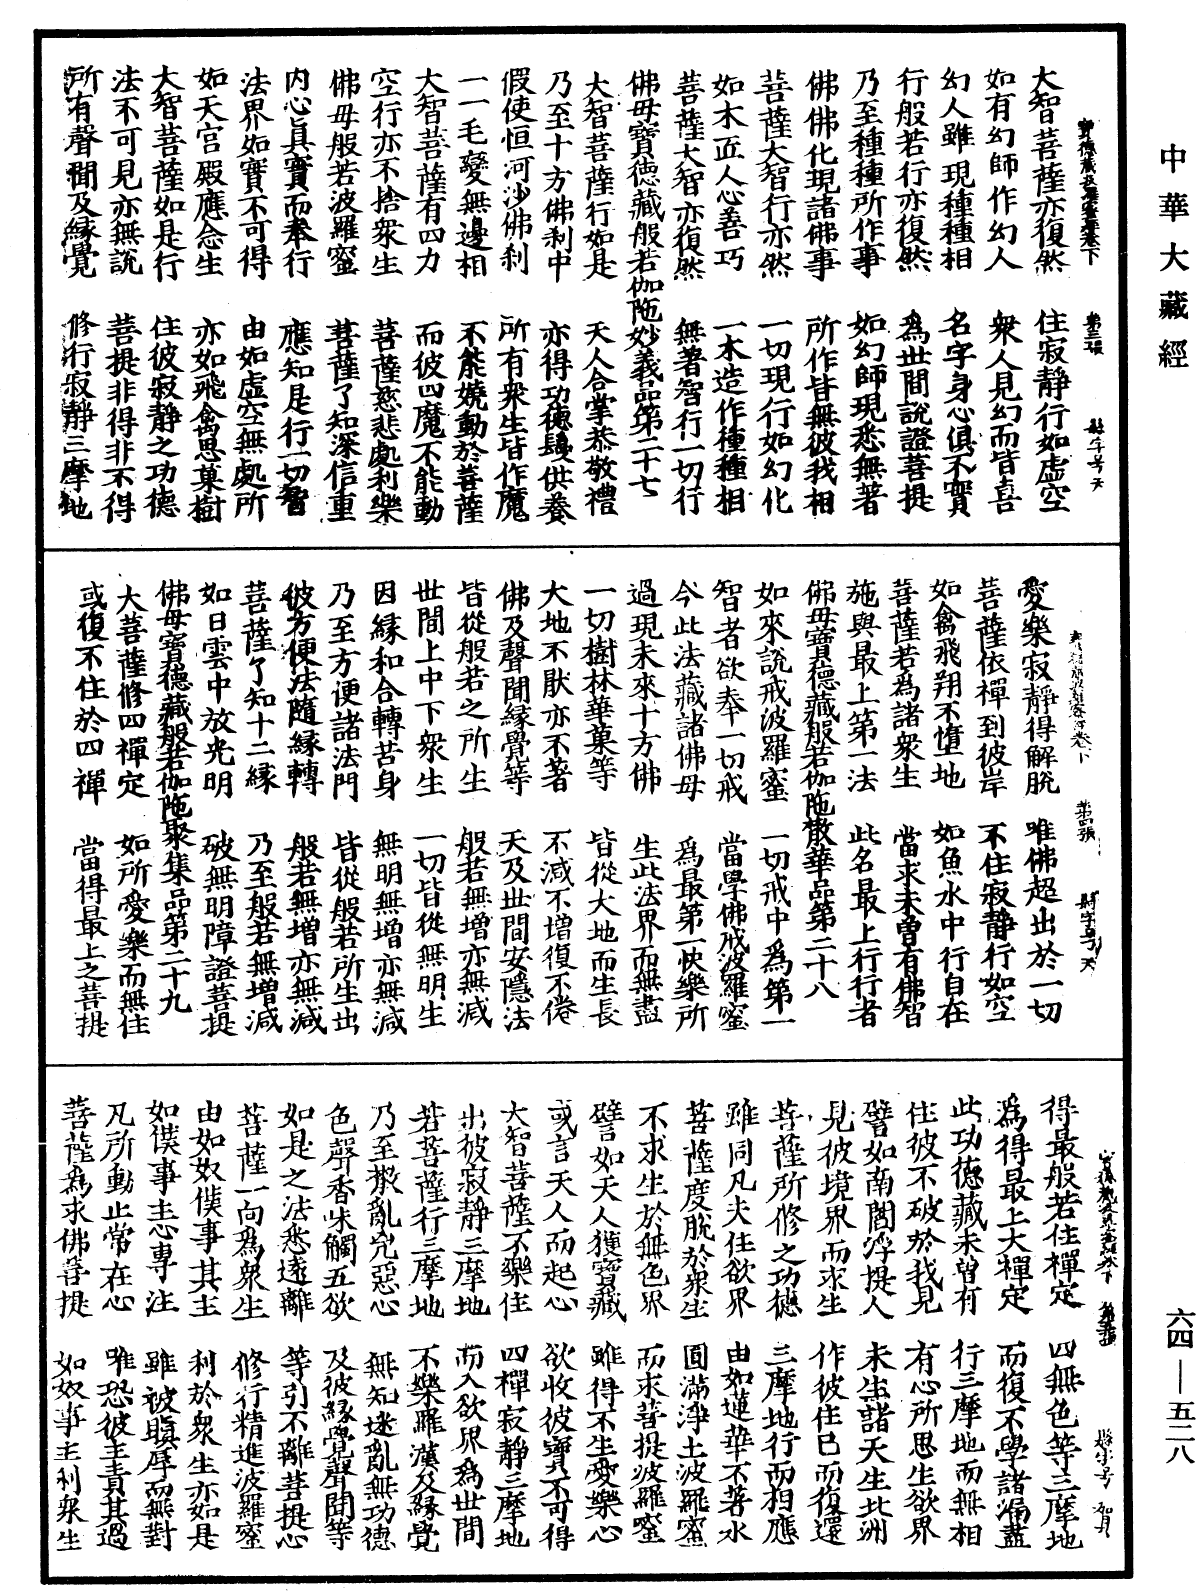 中華大藏經
大智菩薩亦復然　住寂靜行如虛空
如有幻師作幻人　衆人見幻而皆喜
幻人雖現種種相　名字身心俱不實
行般若行亦復然　爲世間說證菩提
乃至種種所作事　如幻師現悉無著
佛佛化現諸佛事　所作皆無彼我相
菩薩大智行亦然　一切現行如幻化
如木匠人心善巧　一木造作種種相
菩薩大智亦復然　無著智行一切行
佛母寶德藏般若伽陁妙義品第二十七
大智菩薩行如是　天人合掌恭敬禮
乃至十方佛刹中　亦得功德鬘供養
假使恒河沙佛刹　所有衆生皆作魔
一一毛變無邊相　不能嬈動於菩薩
大智菩薩有四力　而彼四魔不能動
空行亦不捨衆生　菩薩慈悲處利樂
佛母般若波羅蜜　菩薩了知深信重
内心眞實而奉行　應知是行一切智
法界如實不可得　由如虛空無處所
如天宫殿應念生　亦如飛禽思菓樹
大智菩薩如是行　住彼寂靜之功德
法不可見亦無說　菩提非得非不得
所有聲聞及縁覺　修行寂靜三摩地
愛樂寂靜得解脫　唯佛超出於一切
菩薩依禪到彼岸　不住寂靜行如空
如禽飛翔不墮地　如魚水中行自在
菩薩若爲諸衆生　當求未曽有佛智
施與最上第一法　此名最上行行者
佛母寶德藏般若伽陁散華品第二十八
如來說戒波羅蜜　一切戒中爲第一
智者欲奉一切戒　當學佛戒波羅蜜
今此法藏諸佛母　爲最第一快樂所
過現未來十方佛　生此法界而無盡
一切樹林華菓等　皆從大地而生長
大地不猒亦不著　不減不增復不倦
佛及聲聞縁覺等　天及世間安隱法
皆從般若之所生　般若無增亦無減
世間上中下衆生　一切皆從無明生
因縁和合轉苦身　無明無增亦無減
乃至方便諸法門　皆從般若所生出
彼方便法隨縁轉　般若無增亦無減
菩薩了知十二縁　乃至般若無增減
如日雲中放光明　破無明障證菩提
佛母寶德藏般若伽陁聚集品第二十九
大菩薩修四禪定　如所愛樂而無住
或復不住於四禪　當得最上之菩提
得最般若住禪定　四無色等三摩地
爲得最上大禪定　而復不學諸漏盡
此功德藏未曽有　行三摩地而無相
住彼不破於我見　有心所思生欲界
譬如南閻浮提人　未生諸天生北洲
見彼境界而求生　作彼住已而復還
菩薩所修之功德　三摩地行而相應
雖同凡夫住欲界　由如蓮華不著水
菩薩度脫於衆生　圓滿淨土波羅蜜
不求生於無色界　而求菩提波羅蜜
譬如天人獲寶藏　雖得不生愛樂心
或言天人而起心　欲收彼寶不可得
大智菩薩不樂住　四禪寂靜三摩地
出彼寂靜三摩地　而入欲界爲世間
若菩薩行三摩地　不樂羅漢及縁覺
乃至散亂兇惡心　無知迷亂無功德
色聲香味觸五欲　及彼縁覺聲聞等
如是之法悉遠離　等引不離菩提心
菩薩一向爲衆生　修行精進波羅蜜
由如奴僕事其主　利於衆生亦如是
如僕事主心專注　雖被瞋辱而無對
凡所動止常在心　唯恐彼主責其過
菩薩爲求佛菩提　如奴事主利衆生
六四—五二八